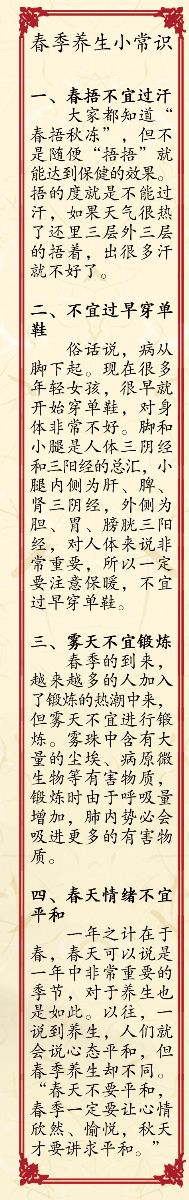 春季养生小常识
一、春捂不宜过汗
大家都知道“
春捂秋冻”，但不
是随便“捂捂”就
能达到保健的效果。
捂的度就是不能过
汗，如果天气很热
了还里三层外三层
的捂着，出很多汗
就不好了。
二、不宜过早穿单
鞋
俗话说，病从
脚下起。现在很多
年轻女孩，很早就
开始穿单鞋，对身
体非常不好。脚和
小腿是人体三阴经
和三阳经的总汇，小
腿内侧为肝、脾、
肾三阴经，外侧为
胆、胃、膀胱三阳
经，对人体来说非
常重要，所以一定
要注意保暖，不宜
过早穿单鞋。
三、雾天不宜锻炼
春季的到来，
越来越多的人加入
了锻炼的热潮中来，
但雾天不宜进行锻
炼。雾珠中含有大
量的尘埃、病原微
生物等有害物质，
锻炼时由于呼吸量
增加，肺内势必会
吸进更多的有害物
质。
四、春天情绪不宜
平和
一年之计在于
春，春天可以说是
一年中非常重要的
季节，对于养生也
是如此。以往，一
说到养生，人们就
会说心态平和，但
春季养生却不同。
“春天不要平和，
春季一定要让心情
欣然、愉悦，秋天
才要讲求平和。”